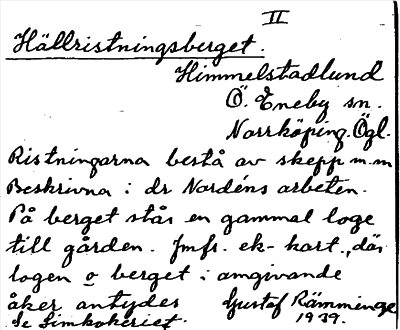 II
Hällristningsberget.
Himmelstadlund
Ö. Eneby sn.
Norrköping. Ögl.
Ristningarna bestå av skepp m.m
Beskrivna i dr Nordéns arbeten.
På berget står en gammal loge
till gården. Jmfr. ek-kart., där
logen o berget i omgivande
åker antydes Gustaf Rämminge
Se Limkokeriet. 1939.